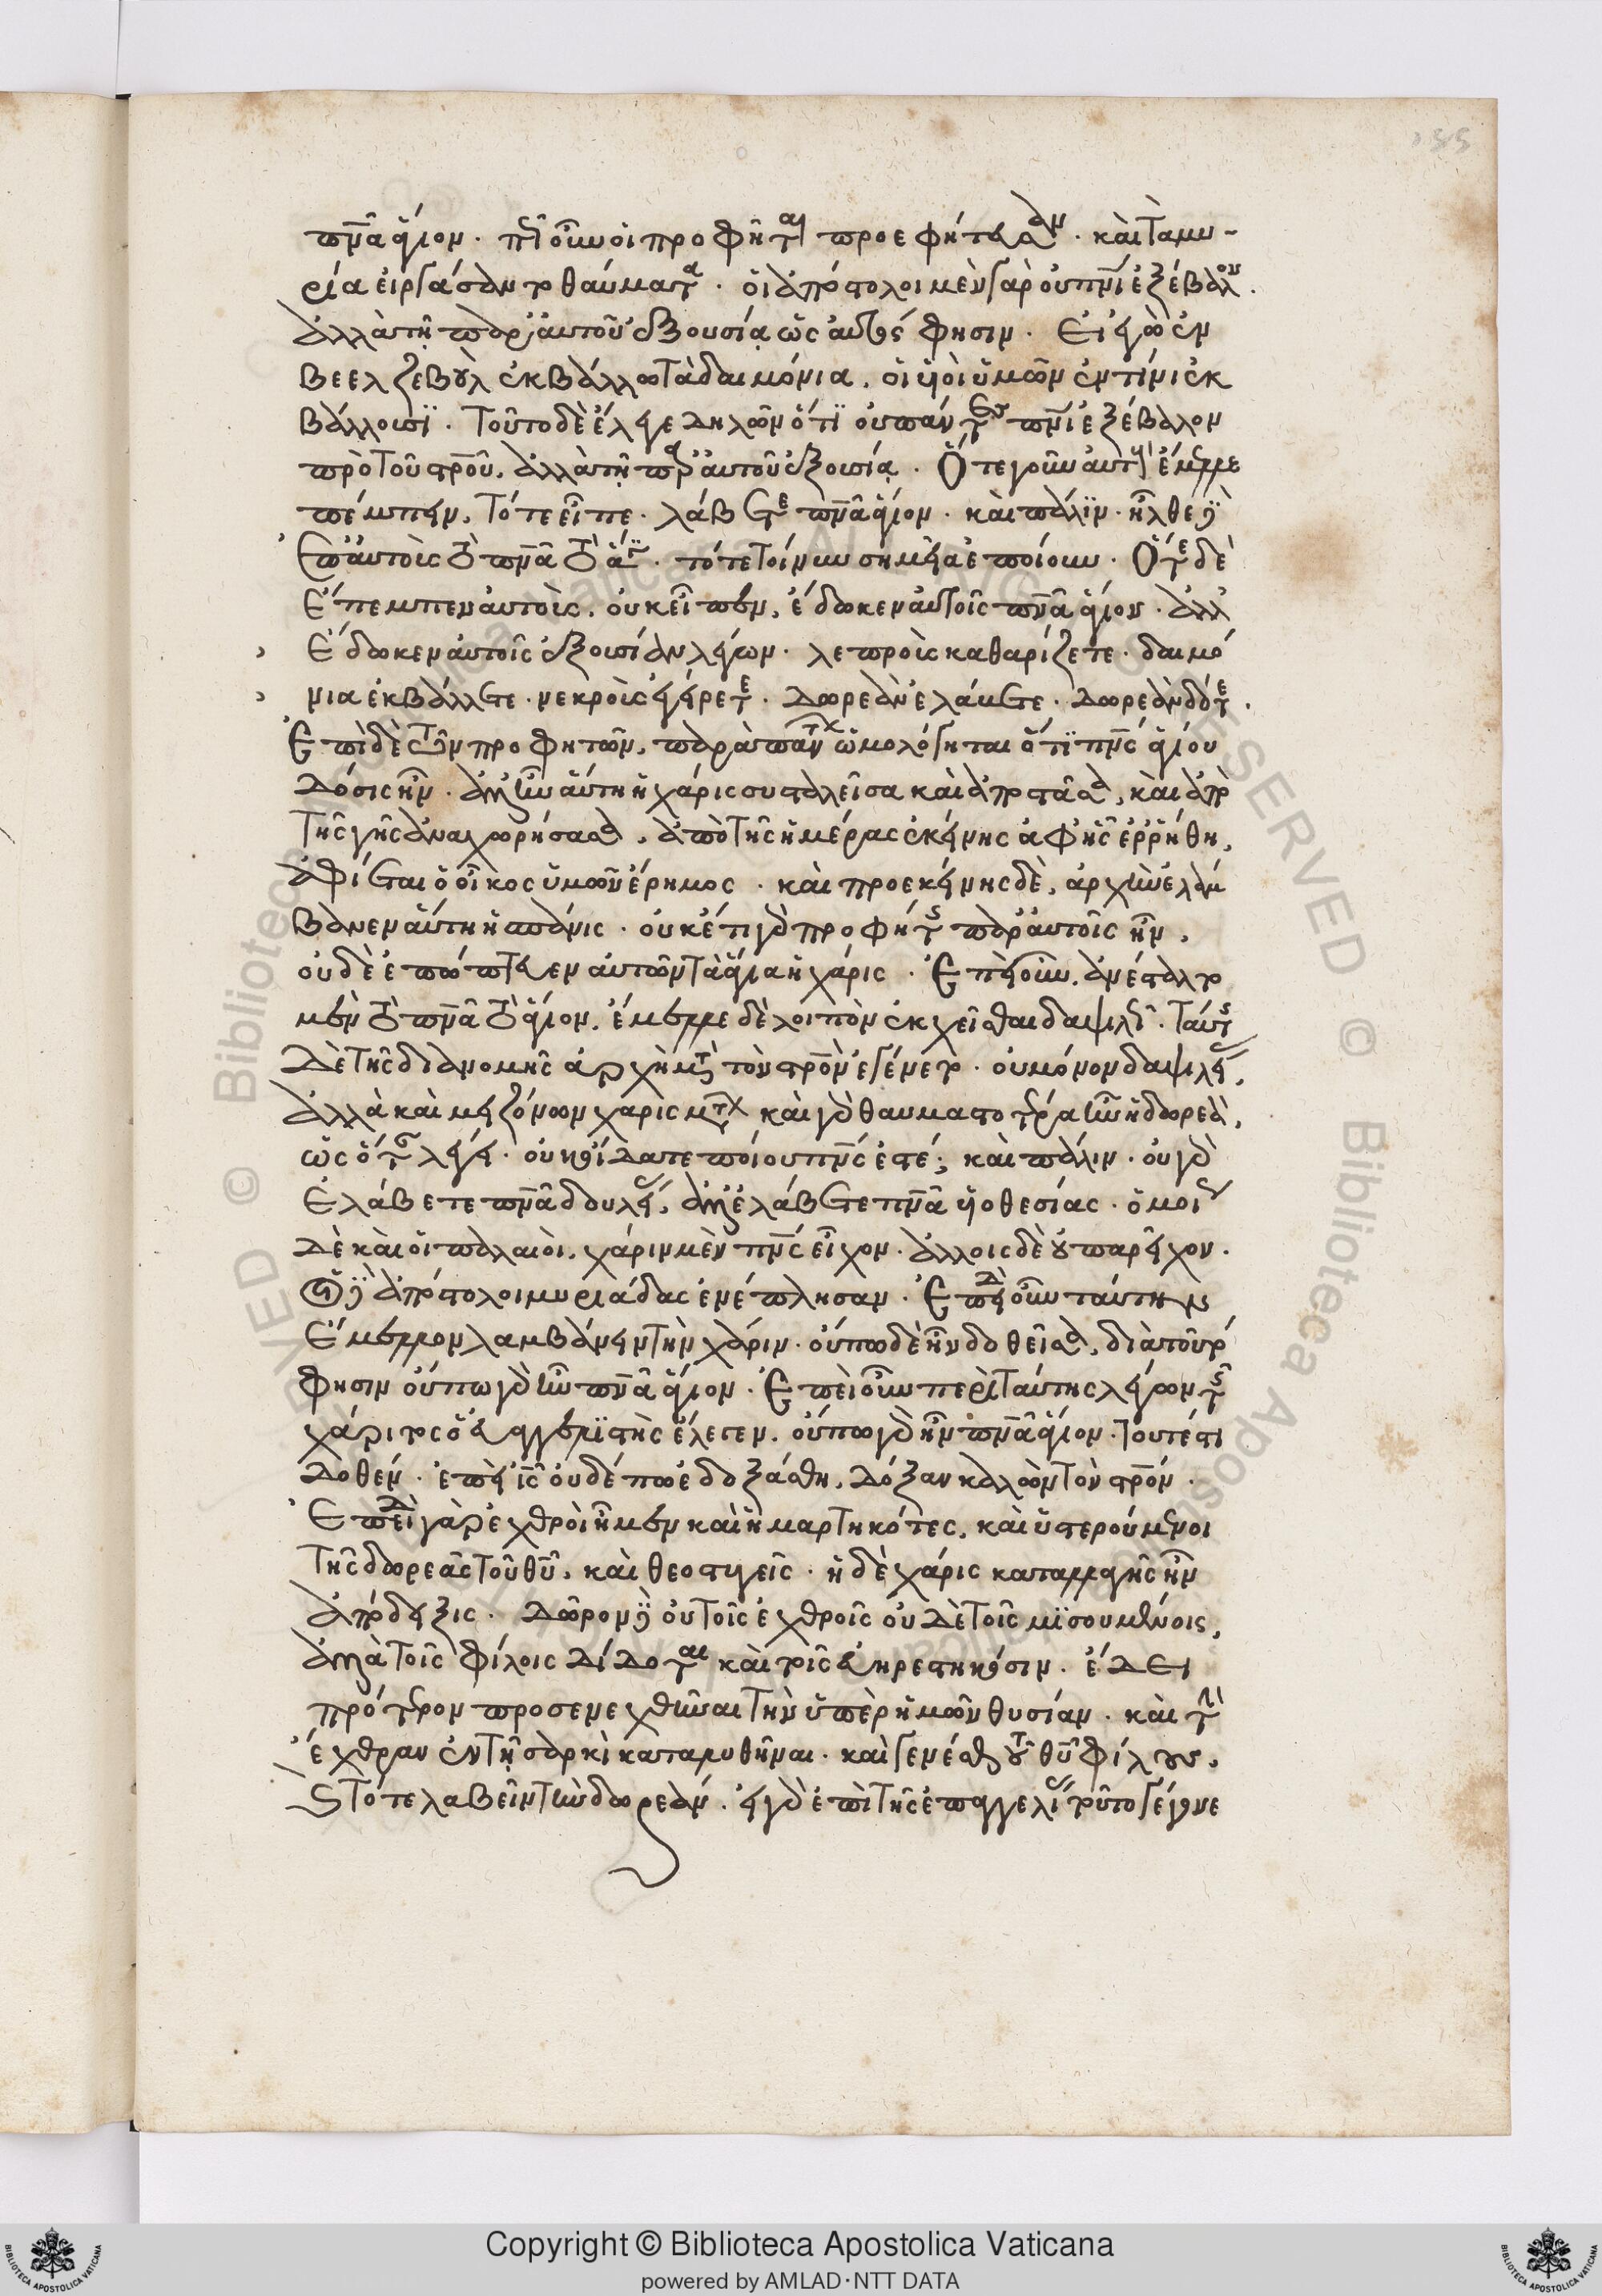 πν̅α ἅγιον. πῶς οὖν οἱ προφῆται προεφήτευσαν. καὶ τὰ μυ-
ρία εἰργάσαντο θαύματα. οἱ ἀπόστολοι μὲν γὰρ οὐ πνι̅ ἐξέβαλον.
ἀλλὰ τῆ παρ' αὐτοῦ ἐξουσία ὥς αὐτός φησιν. Εἰ ἐγὼ ἐν
βεελζεβοὺλ ἐκβάλλω τὰ δαιμόνια, οἱ υἱοὶ ὑμῶν ἐν τίνι ἐκ
βάλλουσϊ. Τοῦτο δὲ ἔλεγε δηλῶν ὅτϊ οὐ πάντες πνι̅ ἐξέβαλον
πρὸ τοῦ στρο̅ῦ. ἀλλὰ τῆ παρ' αὐτοῦ ἐξουσία. Ὅτε γοῦν αὐτοὺς ἔμελλε
πέμπειν, τότε εἶπε. λάβετε πν̅α ἅγιον. καὶ πάλϊν. ἦλθε γὰρ
ἐπ' αὐτοὺς τὸ πν̅α τὸ ἅγ. τότε τοίνυν σημεῖα ἐποίουν. Ὅτε δὲ
ἔπεμπεν αὐτοὺς, οὐκ εἶπεν, ἔδωκεν αὐτοῖς πν̅α ἅγιον. ἀλλ'
ἔδωκεν αὐτοῖς ἐξουσίαν λέγων. λεπροὺς καθαρίζετε. δαιμό
νια ἐκβάλλετε. νεκροὺς ἐγείρετε. δωρεὰν ἐλάβετε. δωρεὰν δότε.
Ἐπὶ δὲ τῶν προφητῶν, παρὰ πάντων ὡμολόγηται ὅτϊ πν̅ς ἁγίου
δόσις ἦν. ἀλλ' ἦν αὕτη ἡ χάρις συσταλεῖσα καὶ ἀποστᾶσα, καὶ ἀπὸ
τῆς γῆς ἀναχωρήσασα, ἀπὸ τῆς ἡμέρας ἐκείνης ἀφ' ἧς ἐρρήθη,
ἀφίεται ὁ οἶκος ὑμῶν ἔρημος. καὶ προ εκείνης δὲ, ἀρχὴν ἐλάμ
βανεν αὕτη ἡ σπάνις. οὐκ έτι γὰρ προφήτης παρ' αὐτοῖς ἦν,
οὐδὲ ἐπώπτευεν αὐτῶν τὰ ἅγια ἡ χάρις. Ἐπεὶ οὖν ἀνέσταλτο
μὲν τὸ πν̅α τὸ ἅγιον, ἔμελλε δὲ λοιπὸν ἐκχεῖσθαι δαψιλῶς. ταύτης
δὲ τῆς διανομῆς ἀρχὴ μετὰ τὸν στρο̅ν ἐγένετο. οὐ μόνον δαψιλείας,
ἀλλὰ καὶ μειζόνων χαρισμάτων καὶ γὰρ θαυμαστοτέρα ἦν ἡ δωρεὰ,
ὡς ὅταν λέγη. οὐκ οἴδατε ποίου πν̅ς ἐστέ; καὶ πάλιν. οὐ γὰρ
ἐλάβετε πν̅α δουλείας, ἀλλ' ἐλάβετε πν̅α υἱοθεσίας. ὅμοι
δὲ καὶ οἱ παλαιοὶ, χάριν μὲν πν̅ς εἶχον. ἄλλοις δὲ οὐ παρεῖχον.
οἱ γὰρ ἀπόστολοι μυριάδας ἐνέπλησαν. Ἐπειδὴ οὖν ταύτην
ἔμελλον λαμβάνειν τὴν χάριν. οὔπω δὲ ἦν δοθεῖσα, διὰ τοῦτό
φησιν οὔπω γὰρ ἦν πν̅α ἅγιον. Ἐπεὶ οὖν περὶ ταύτης λέγων τῆς
χάριτος ὁ εὐαγγελϊστὴς ἔλεγεν. οὔπω γὰρ ἦν πν̅α ἅγιον. τουτέστι
δοθέν. ἐπεὶ ις̅ οὐδέπω ἐδοξάσθη, δόξαν καλῶν τὸν στρο̅ν.
Ἐπειδὴ γὰρ ἐχθροὶ ἦμεν καὶ ἡμαρτηκότες, καὶ ὑστερούμενοι
τῆς δωρεᾶς τοῦ θυ̅, καὶ θεοστυγεῖς. ἡ δὲ χάρις καταλλαγῆς ἦν
ἀπόδειξις. δῶρον γὰρ οὐ τοῖς ἐχθροῖς οὐδὲ τοῖς μϊσουμένοις,
ἀλλὰ τοῖς φίλοις δίδοται καὶ τοῖς εὐηρεστηκόσιν. ἔδει
πρότερον προσενεχθῆναι τὴν ὑπὲρ ἡμῶν θυσίαν. καὶ τὴν
ἔχθραν ἐν τῆ σαρκὶ καταλυθῆναι. καὶ γενέσθαι τοῦ θυ̅ φίλους,
καὶ τότε λαβεῖν τὴν δωρεάν. εἰ γὰρ ἐπὶ τῆς ἐπαγγελίας τοῦτο γέγονε